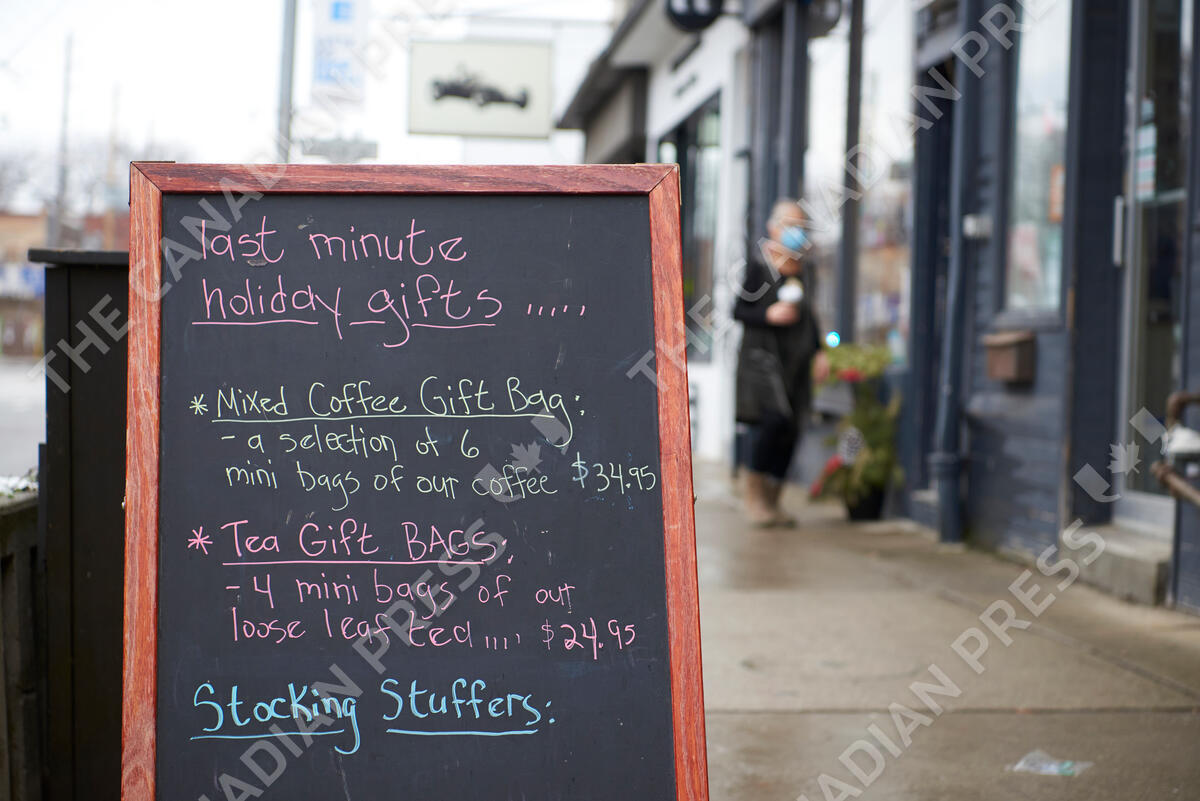 last minute
holiday gifts .....
* Mixed Coffee Gift Bag:
- a selection of 6
mini bags of our coffee $34.95
* Tea Gift BAGS:
- 4 mini bags of our
loose leaf tea .... $24.95
Stocking Stuffers:
THE CANADIAN PRESS
THE CANADIAN PRESS
THE CANADIAN PRESS
CANADIAN PRESS